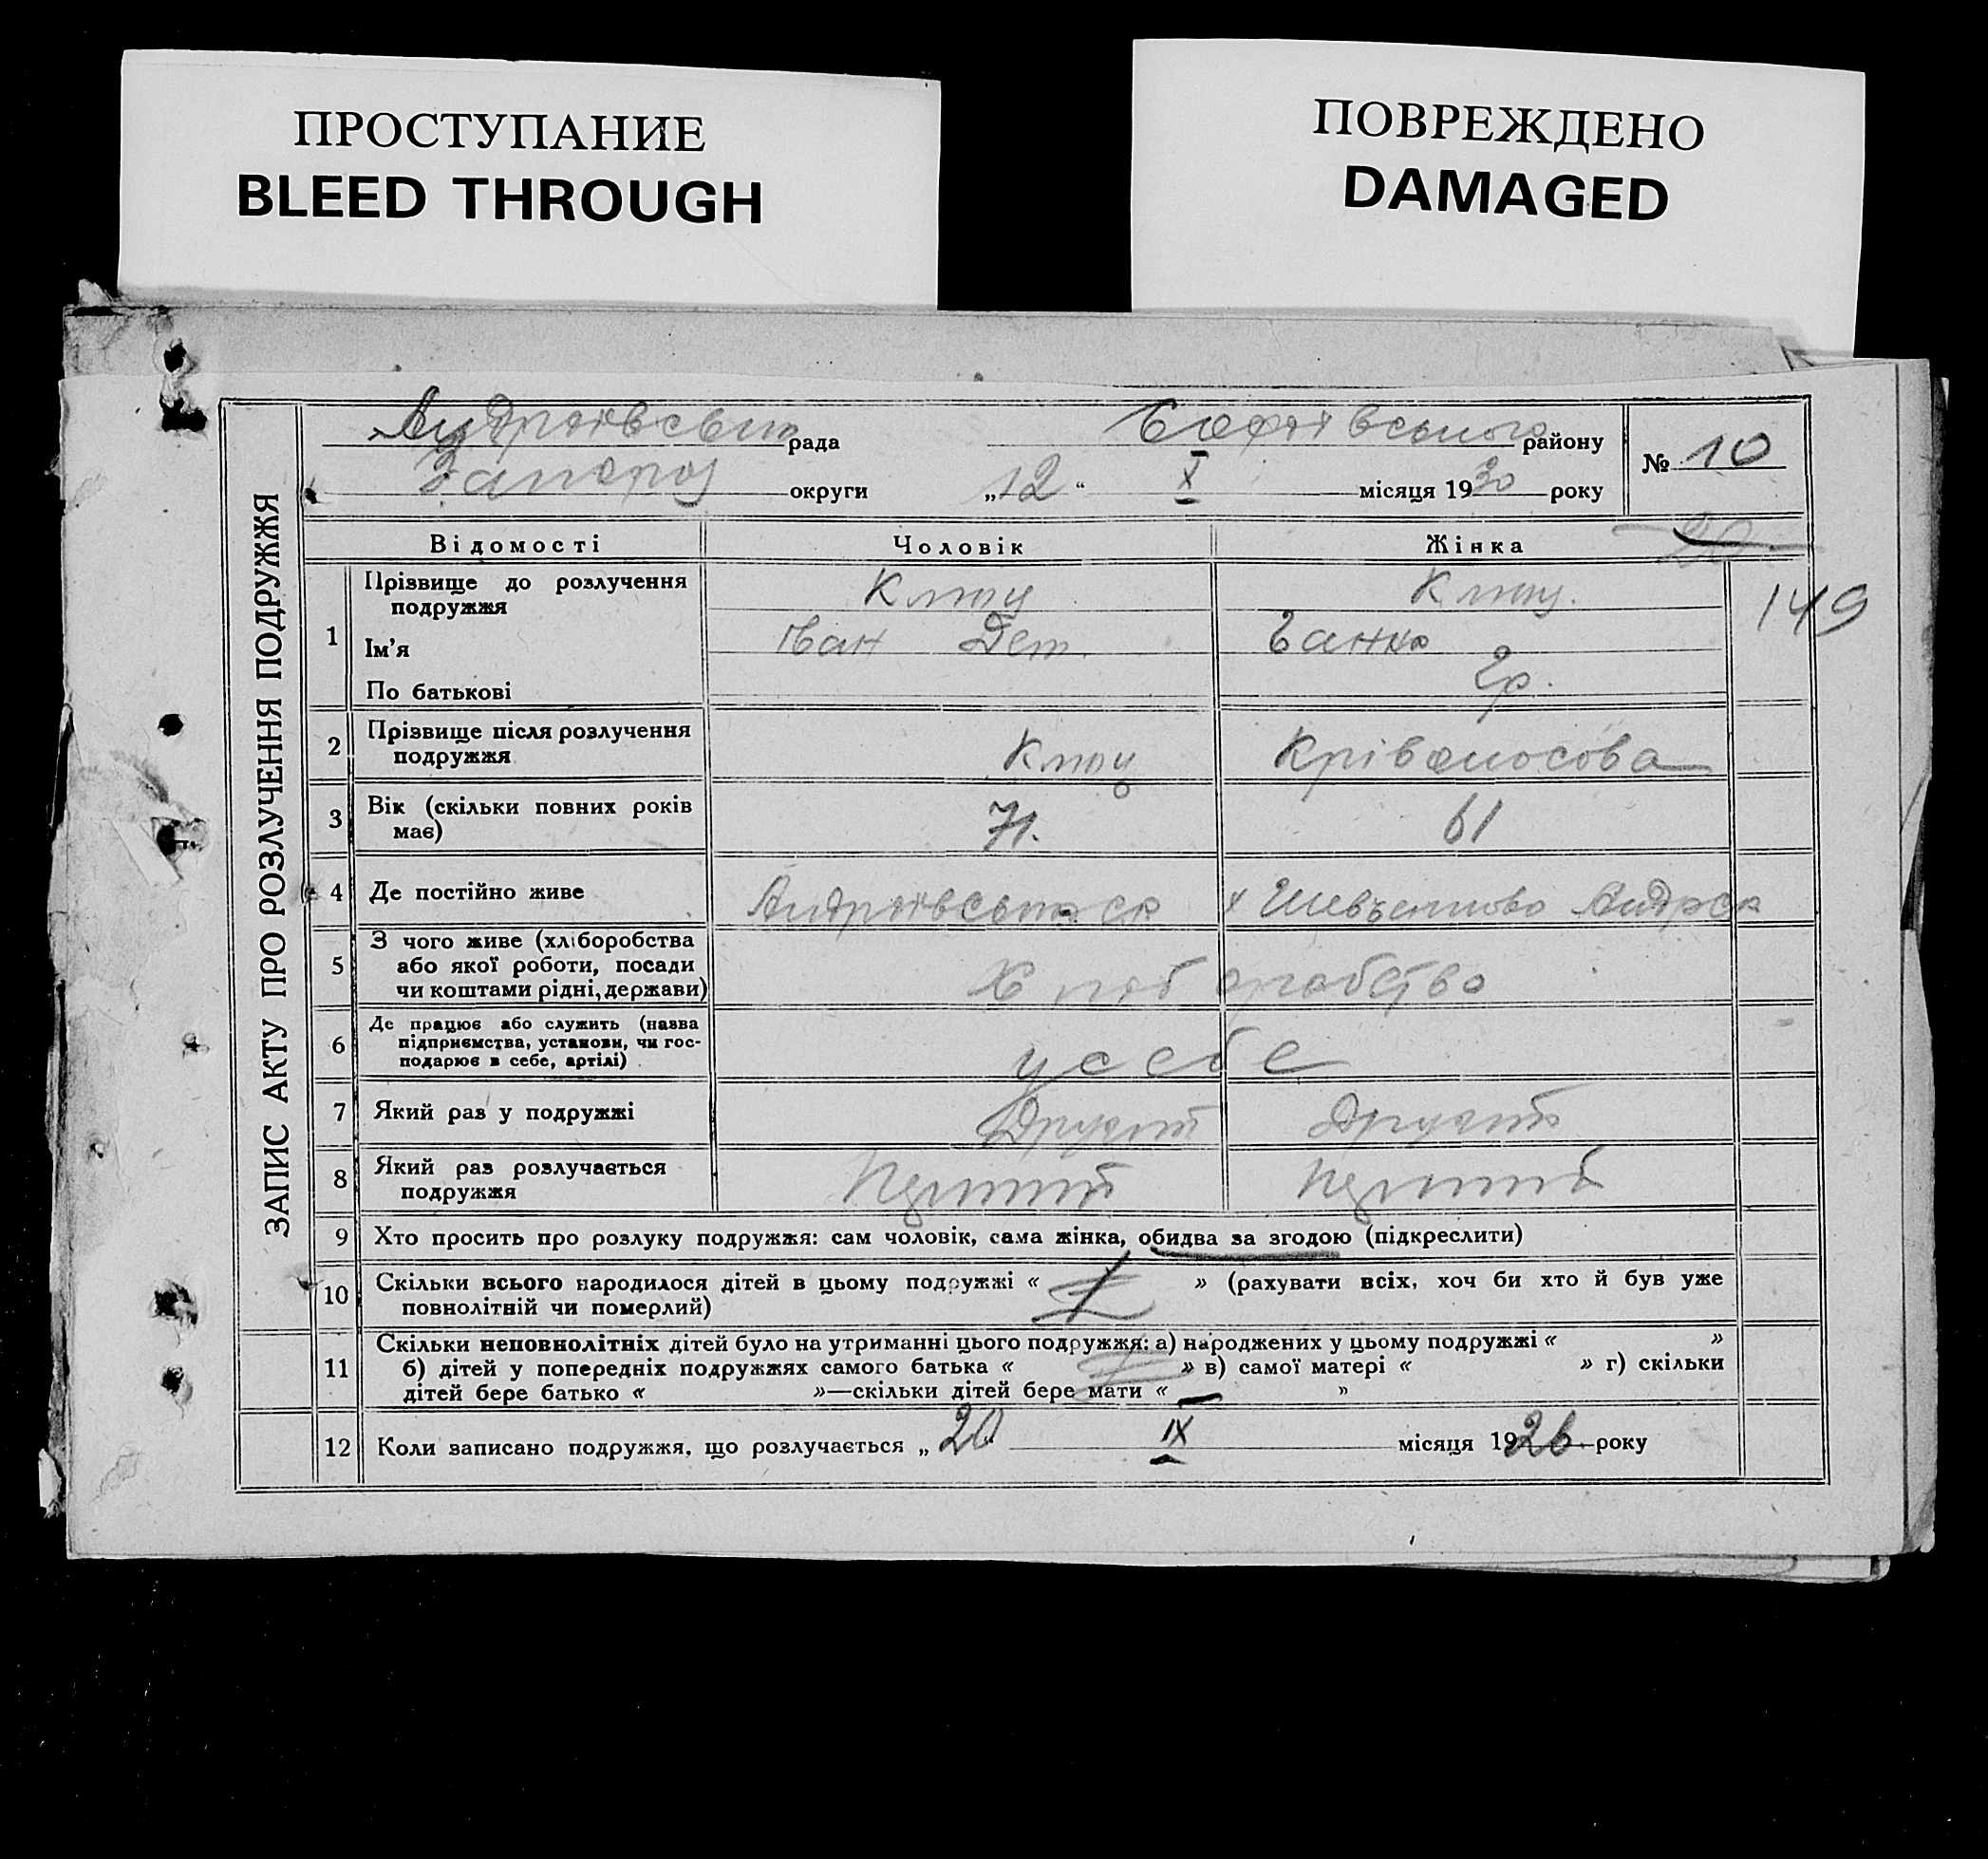 ПРОСТУПАНИЕ
BLEED THROUGH
ПОВРЕЖДЕНО
DAMAGED
ЗАПИС АКТУ ПРО РОЗЛУЧЕННЯ ПОДРУЖЖЯ
рада Софіївського району
округи „12“ X місяця 1930 року
№ 10
Відомості Чоловік Жінка
149
1 Прізвище до розлучення
подружжя
Ім'я Іван Ганна
По батькові Гр.
2 Прізвище після розлучення
подружжя
3 Вік (скільки повних років 71. 61
має)
4 Де постійно живе
5 З чого живе (хліборобства
або якої роботи, посади Хліборобство
чи коштами рідні, держави)
6 Де працює або служить (назва
підприємства, установи, чи гос- у себе
подарює в себе, артілі)
7 Який раз у подружжі Другий
8 Який раз розлучається
подружжя
9 Хто просить про розлуку подружжя: сам чоловік, сама жінка, обидва за згодою (підкреслити)
10 Скільки всього народилося дітей в цьому подружжі « » (рахувати всіх, хоч би хто й був уже
повнолітній чи померлий)
11 Скільки неповнолітніх дітей було на утриманні цього подружжя: а) народжених у цьому подружжі « »
б) дітей у попередніх подружжях самого батька « » в) самої матері « » г) скільки
дітей бере батько « »—скільки дітей бере мати « — »
12 Коли записано подружжя, що розлучається „20 IX місяця 1926 року